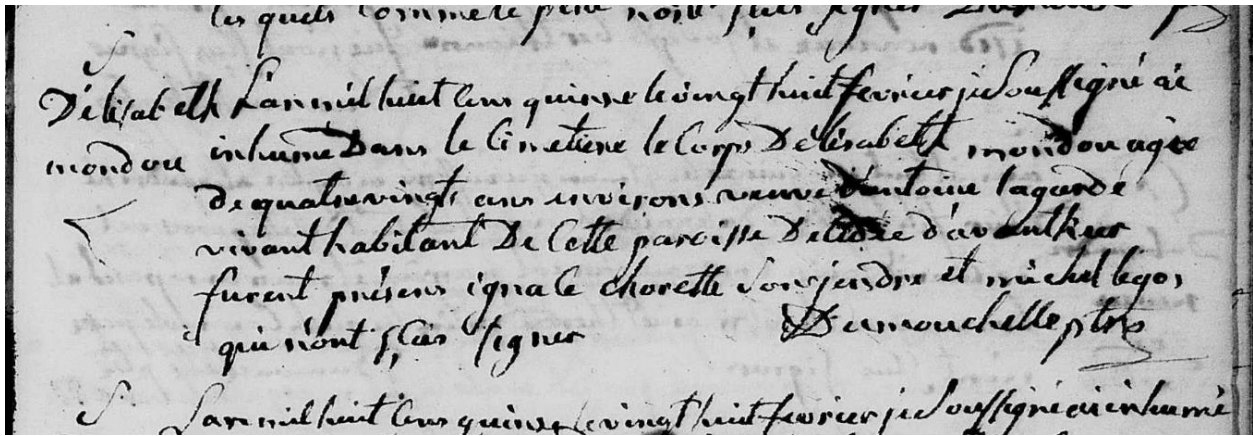 les quels comme le père n'ont sçus signer Dumouchelle ptre
S
D'élisabeth L'an mil huit cens quinse le vingt huit fevrier je soussigné ai
mondou inhumé Dans le Cimetiere le Corps D'élisabeth mondou agée
de quatrevingts ans environs veuve d'antoine lagarde
vivant habitant De Cette paroisse Décédée d'avant hier
furent présens ignace chorette son jendre et michel legos
qui n'ont sçus signer Dumouchelle ptre
S L'an mil huit cens quinse le vingt huit fevrier je soussigné ai inhumé